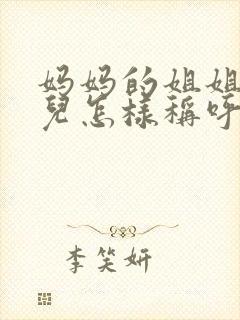 妈妈的姐姐
兒怎樣稱呼
李笑妍